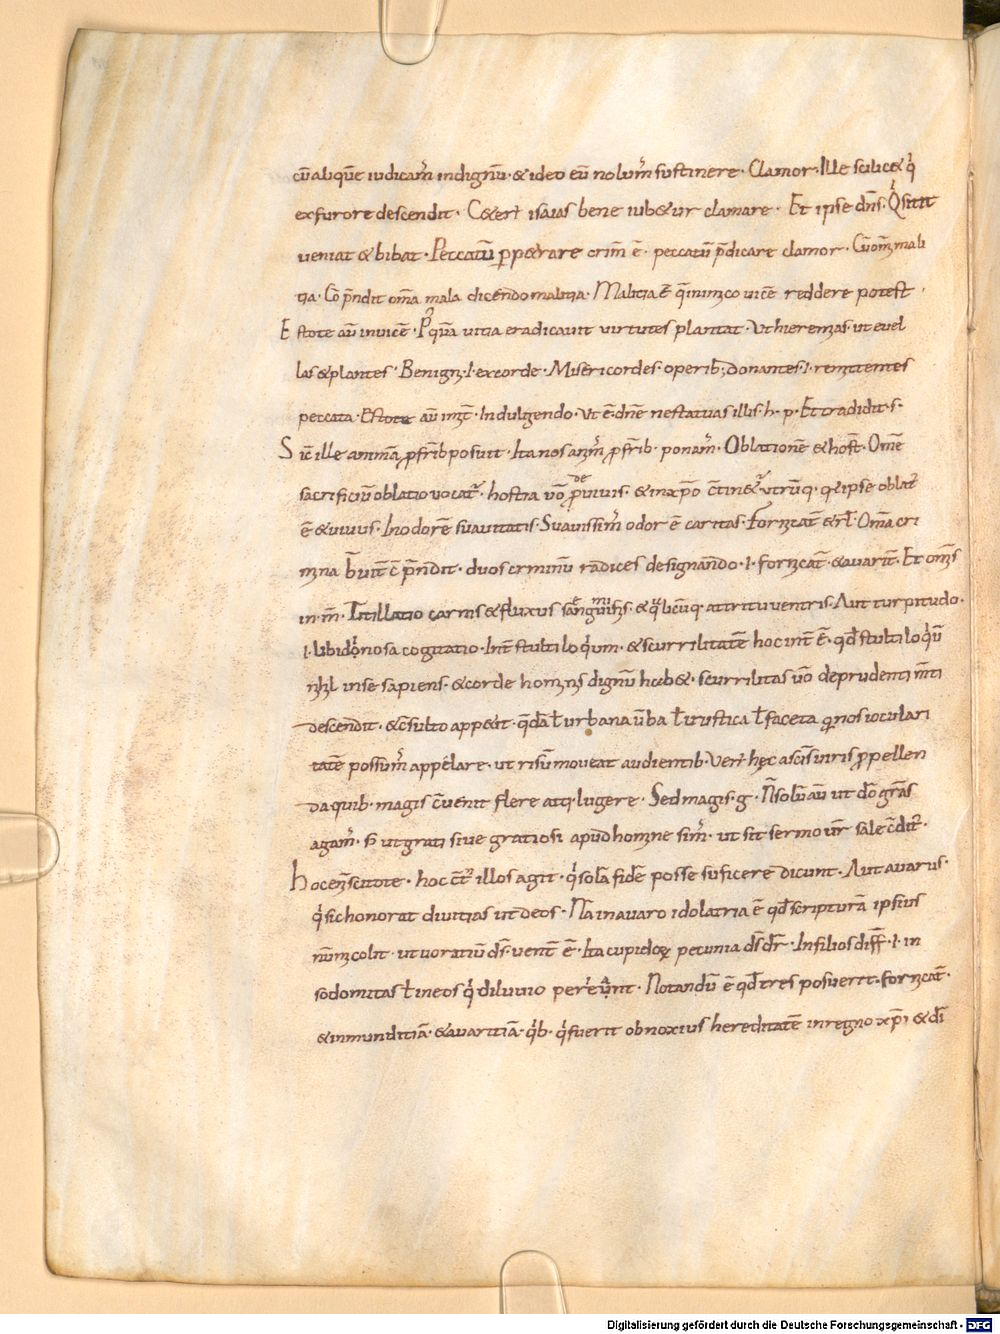 cū aliquē iudicam̄ indignū · & ideo eū nolum̄ sustinere · Clamor · Ille scilic& q̇
ex furore descendit · Cet̄ert isaias bene iub&ur clamare · Et ipse dn̄s · Q̇ sitit
veniat & bibat · Peccatū perp&rare crim̄ ē · peccatū p̄dicare clamor · Cū om̄i mali
tia · Cōp̄ndit om̄a mala dicendo malitia · Malitia ē q̄ inimico vicē reddere potest ·
Estote aū invicē · Pꝰquā vitia eradicavit virtutes plantat · Ut hieremias · ut evel
las & plantes · Benigni · i · ex corde · Misericordes · operib; donantes · i · remittentes
peccata · Estote aū in̄t · Indulgendo · Ut ē · dn̄e ne statuas illis · h · p · Et tradidit · s ·
Sic̄ ille animā p fr̄ib posuit · Ita nos anim̄ p fr̄ib · ponam̄ · Oblationē & host̄ · Om̄e
sacrificiū oblatio vocat̄ · hostia vō de p̄vivis · & in xp̄o c̄tinet̄ utrūq · q& ipse oblat̄
ē & vivus · In odorē suavitatis · Suavissim̄ odor ē caritas · Fornicat̄ & rl̄ · Om̄a cri
mina br̄vit̄ c̄p̄ndit · duos criminū radices designando · i · fornicat̄ · & avarit̄ · Et om̄s
in · m̄ · Titillatio carnis & fluxus sanguinis · & q̄licūq · attritu ventris · Aut turpitudo ·
i · libidinosa cogitatio · Int̄ stultiloq̇um · & scurrilitatē hoc int̄ ē · qd̄ stultiloq̇ū
nihil in se sapiens · & corde hominis dignū hab& · scurrilitas vō de prudenti m̄ti
descendit · & c̄sulto app&it · q̄dā t̄ urbana v̄ba t̄ rustica t̄ faceta q̄ nos ioculari
tatē possum̄ appellare · ut risū moveat audientib · Verī hęc a sc̄is viris p pellen
da quib · magis c̄venit flere atq; lugere · Sed magis · g̅ · N̄ solū aū ut dō gr̄as
agam̄ · s̄ ut grati sive gratiosi apud homine sim̄ · ut sit sermo ur̄ sale c̄dit̄ ·
hoc eni scitote · hoc c̄t̄ illos agit · q̇ solā fidē posse suficere dicunt · Aut avarus ·
q̇ sic honorat divitias ut deos · Nā in avaro idolatria ē qd̄ scripturā ipsius
num̄i colit · ut voratiū ds̄ · vent̄ ē · Ita cupidoꝝ pecunia ds̄ dr̄ · In filios diff̄ · i · in
sodomitas t̄ in eos q̇ diluvio perierunt · Notandū ē qd̄ tres posuerit · fornicat̄ ·
& inmunditiā · & avaritiā · q̇b · q̇ fuerit obnoxius hereditatē in regno xp̄i & dī
Digitalisierung gefördert durch die Deutsche Forschungsgemeinschaft - DFG